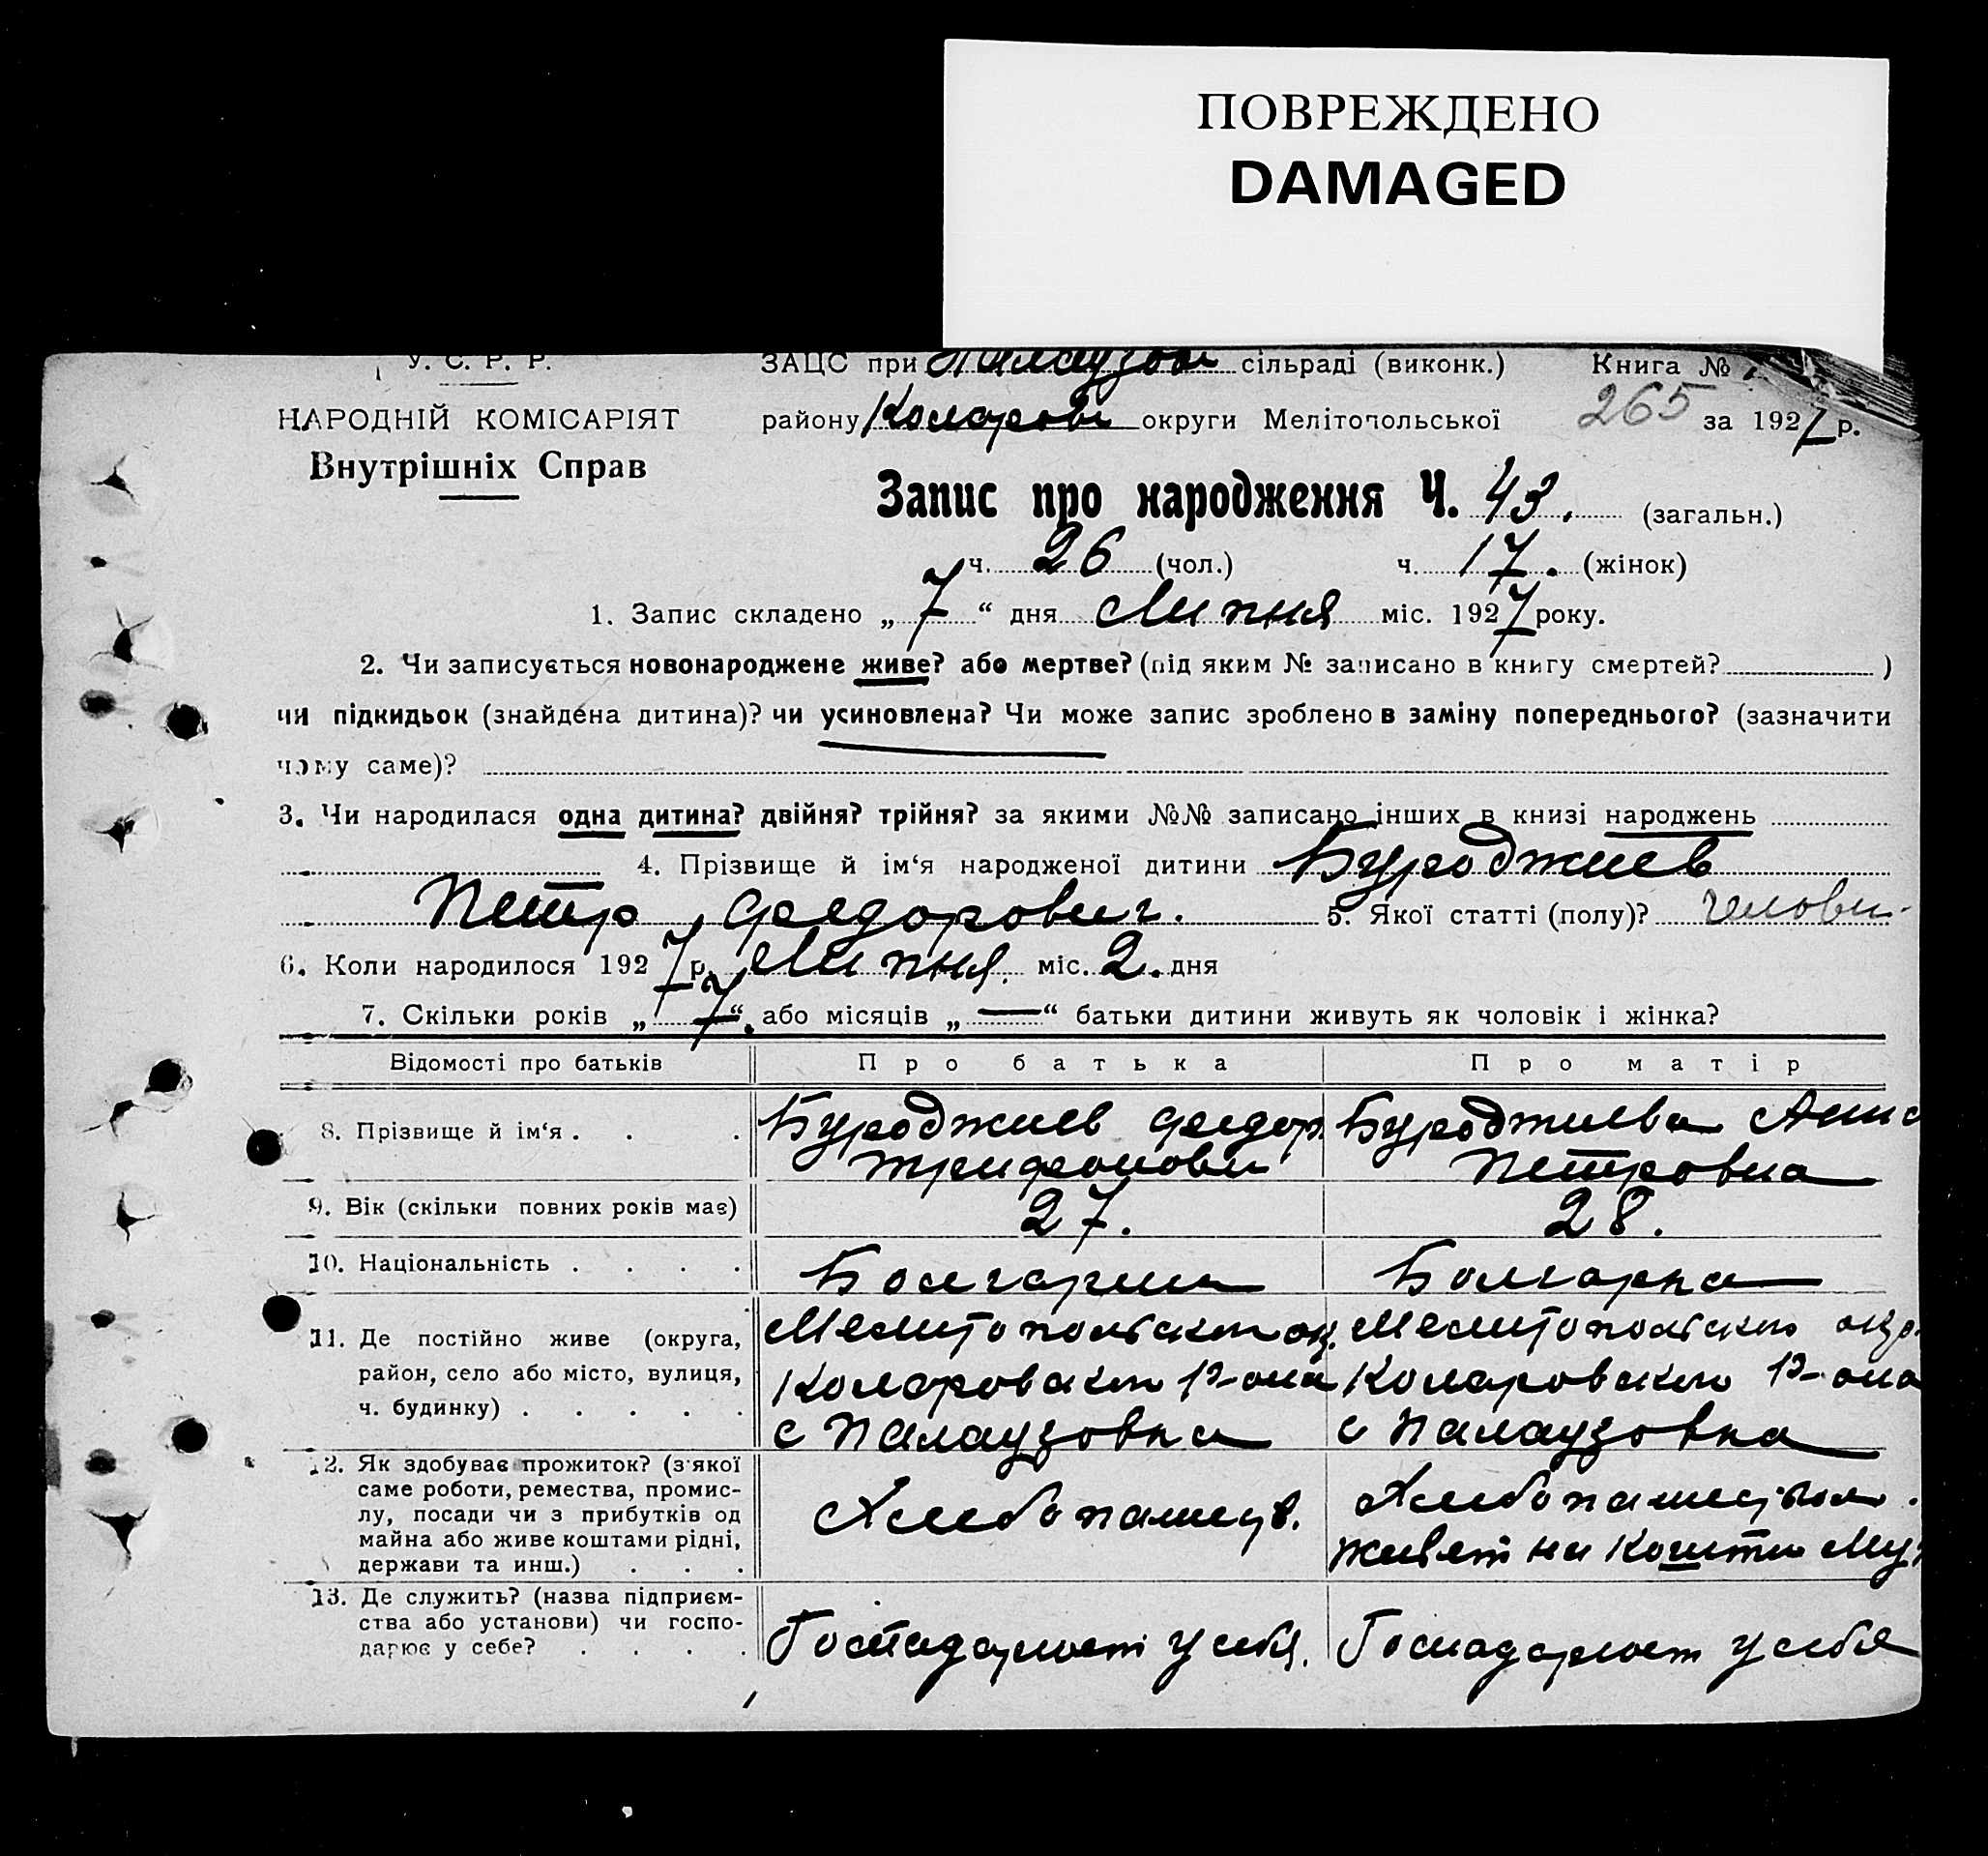 ПОВРЕЖДЕНО
DAMAGED
У. С. Р. Р.
ЗАЦС при Палаузов сільраді (виконк.) Книга №
НАРОДНІЙ КОМІСАРІЯТ
району Коларов округи Мелітопольської 265 за 1927 р.
Внутрішніх Справ
Запис про народження Ч. 43. (загальн.)
ч. 26 (чол.) ч. 17. (жінок)
1. Запис складено „ 7 “ дня Липня міс. 1927 року.
2. Чи записується новонароджене живе? або мертве? (під яким № записано в книгу смертей? )
чи підкидьок (знайдена дитина)? чи усиновлена? Чи може запис зроблено в заміну попереднього? (зазначити
чому саме)?
3. Чи народилася одна дитина? двійня? трійня? за якими №№ записано інших в книзі народжень
4. Прізвище й ім‘я народженої дитини Буроджиев
Петр Федорович. 5. Якої статті (полу)? челович.
6. Коли народилося 1927 р. Липня. міс. 2. дня
7. Скільки років „ 7 “, або місяців „ — “ батьки дитини живуть як чоловік і жінка?
Відомості про батьків Про батька Про матір
8. Прізвище й ім‘я . . . Буроджиев Федор Буроджиева Анна
Трифонови Петровна
9. Вік (скільки повних років має) 27. 28.
10. Національність . . . . Болгарин Болгарка
11. Де постійно живе (округа, Мелитопольского ок. Мелитопольского окр.
район, село або місто, вулиця, Коларовского Р-она Коларовского Р-она
ч. будинку) . . . . . с Палаузовка с Палаузовка
12. Як здобуває прожиток? (з якої
саме роботи, ремества, промис-
лу, посади чи з прибутків од Хлебопашец.
майна або живе коштами рідні, живет на кошти Му
держави та инш.) . . .
13. Де служить? (назва підприєм-
ства або установи) чи госпо- Господарюет у себя. Господарюет у себя
дарює у себе? . . . .